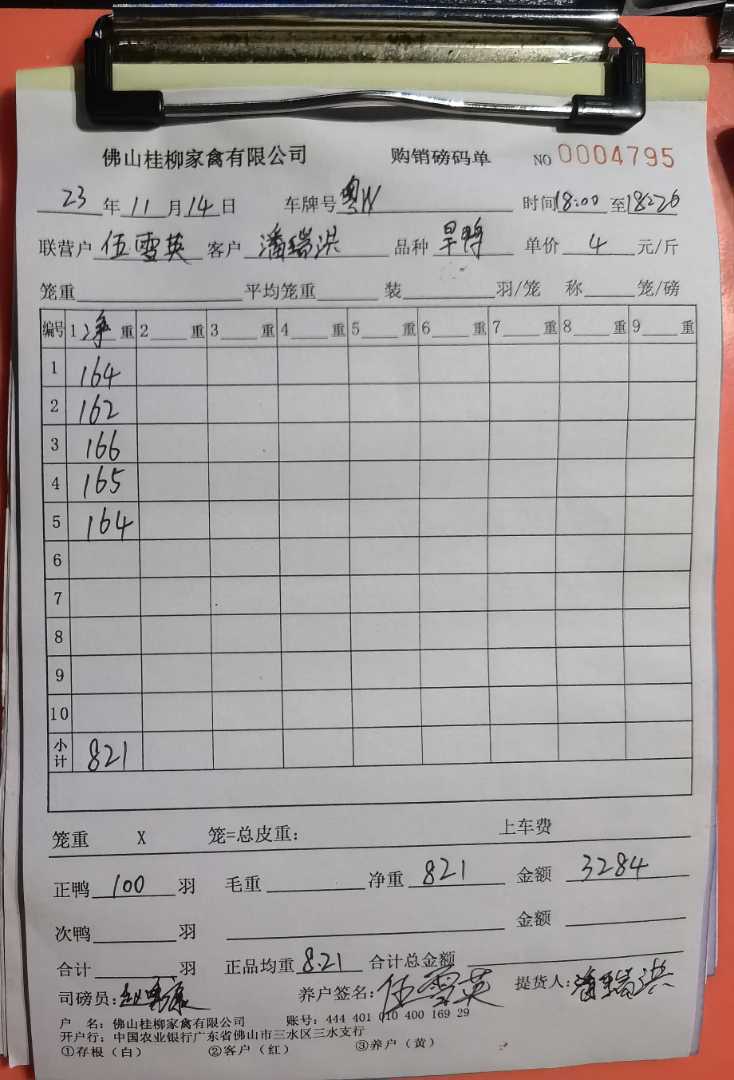 佛山桂柳家禽有限公司 购销磅码单 NO 0004795
23 年 11 月 14 日 车牌号 粤W 时间 18:00 至 18:26
联营户 伍雪英 客户 潘瑞洪 品种 单价 4 元/斤
笼重 平均笼重 装 羽/笼 称 笼/磅
编号 1 净 重 2 重 3 重 4 重 5 重 6 重 7 重 8 重 9 重
1 164
2 162
3 166
4 165
5 164
6
7
8
9
10
小计 821
笼重 X 笼=总皮重: 上车费
正鸭 100 羽 毛重 净重 821 金额 3284
次鸭 羽 金额
合计 羽 正品均重 8.21 合计总金额
司磅员: 养户签名: 伍雪英 提货人: 潘瑞洪
户 名: 佛山桂柳家禽有限公司 账号: 444 401 010 400 169 29
开户行: 中国农业银行广东省佛山市三水区三水支行
①存根(白) ②客户(红) ③养户(黄)